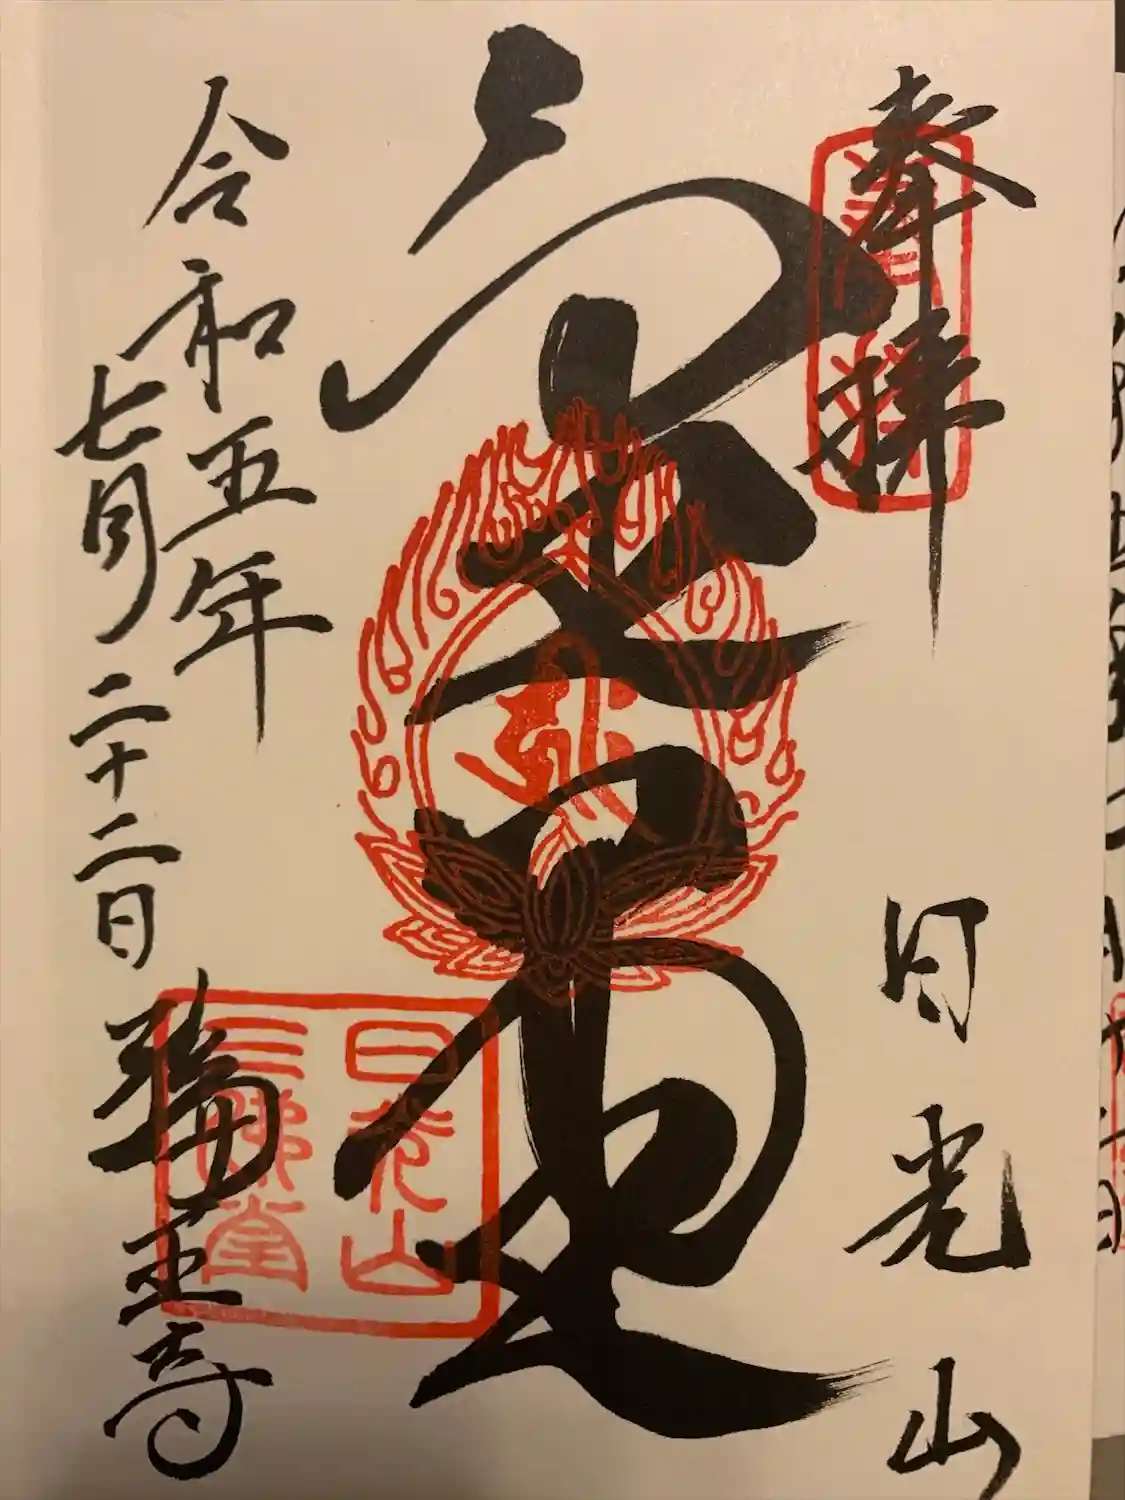 奉拝 日光山
金堂
日光山
三佛堂
令和五年
七月二十二日 輪王寺